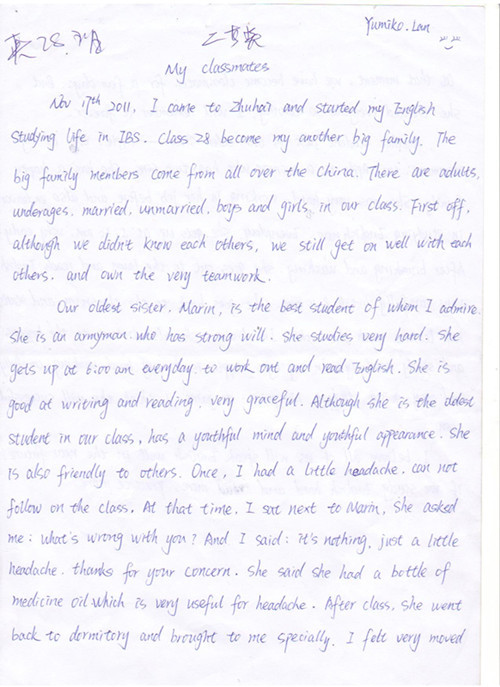 Yumiko.Lan
英28.
My classmates
Nov 17th 2011, I came to Zhuhai and started my English
studying life in IBS. Class 28 become my another big family. The
big family members come from all over the China. There are adults,
underages, married, unmarried, boys and girls, in our class. First off,
although we didn't know each others, we still get on well with each
others. and own the very teamwork.
Our oldest sister, Marin, is the best student of whom I admire.
She is an armyman who has strong will. She studies very hard. She
gets up at 6:00 am everyday to work out and read English. She is
good at writing and reading. very graceful. Although she is the oldest
student in our class, has a youthful mind and youthful appearance. She
is also friendly to others. Once, I had a little headache. can not
follow on the class. At that time. I sat next to Marin, She asked
me: what's wrong with you? And I said: it's nothing, just a little
headache. thanks for your concern. She said she had a bottle of
medicine oil which is very useful for headache. After class, she went
back to dormitory and brought to me specially. I felt very moved